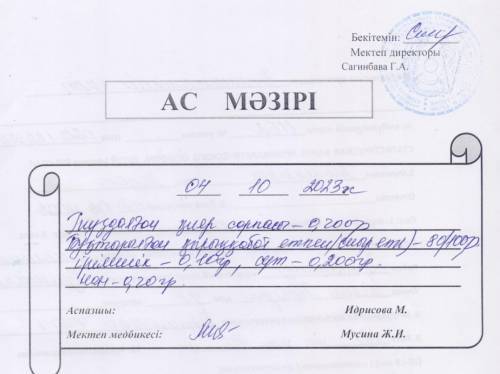 Бекітемін:
Мектеп директоры
Сагинбава Г.А.
АС МӘЗІРІ
04 10 2023ж
Тұздалған қияр сорпасы – 0,200гр
етпен (сиыр еті) – 80/100гр
ірімшік – 0,10гр, сүт – 0,200гр.
нан – 0,70гр.
Аспазшы: Идрисова М.
Мектеп медбикесі: Мусина Ж.И.